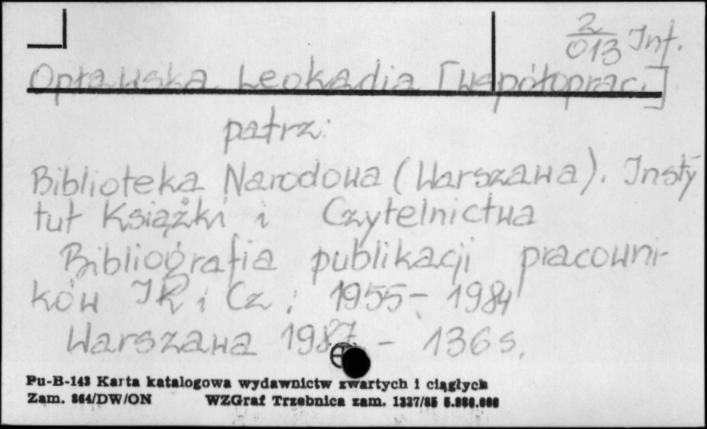 2/013 Inf.
Opławska Leokadia [współoprac.]
patrz:
Biblioteka Narodowa (Warszawa). Insty
tut Książki i Czytelnictwa
Bibliografia publikacji pracowni-
ków IK i Cz : 1955 - 1984
Warszawa 1987 - 136 s.
Pu-B-143 Karta katalogowa wydawnictw zwartych i ciągłych
Zam. 864/DW/ON WZGraf Trzebnica zam. 1327/85 5.000.000